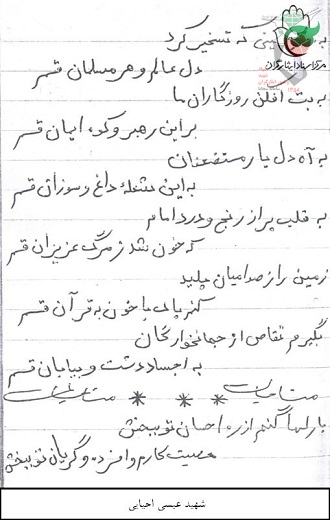 به
که تسخیر کرد
دل عالم و هر مسلمان قسم
به بت افکن روزگاران ما
بر این رهبر و کوه ایمان قسم
به آه دل یار مستضعفان
به این مشعله داغ و سوزان قسم
به قلب پر از رنج و درد امام
که خون شد ز مرگ عزیزان قسم
زمین را ز صدامیان پلید
کنم پاک با خون به قرآن قسم
بگیرم تقاص از جهانخوارگان
به اجساد دشت و بیابان قسم
مناجات * * * مناجات
بارالها گنهم از ره احسان تو ببخش
معصیت کارم و افزده و گریان تو ببخش
مرکز اسناد ایثارگران
شهید عیسی احیایی